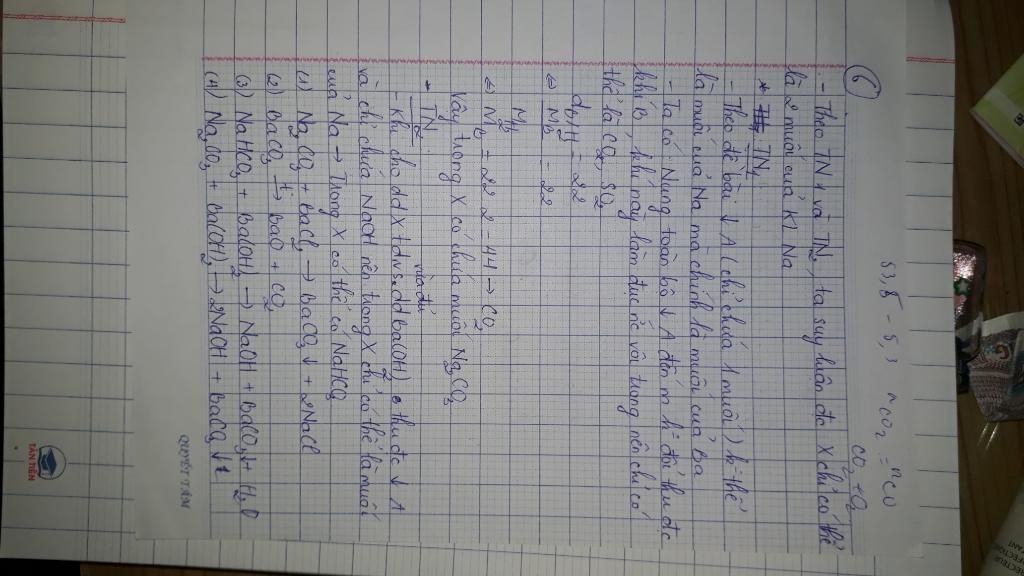 53,8 - 5,3 nCO2 = nCO
CO2 + O2
6
- Theo TN1 và TN2, ta suy luận đc X chỉ có thể
là 2 muối của Kl Na
* TN1
- Theo đề bài: ↓ A (chỉ chứa 1 muối) k thể
là muối của Na mà chính là muối của Ba
- Ta có: Nung toàn bộ ↓ A đến m k đổi thu đc
khí B, khí này làm đục nc vôi trong nên chỉ có
thể là CO2, SO2
dB/H2 = 22
⇔ MB = 22
M2
⇔ MB = 22.2 = 44 → CO2
Vậy trong X có chứa muối Na2CO3
* TN2
vừa đủ
- Khi cho dd X td vs dd Ba(OH)2 thu đc ↓ A
và chỉ chứa NaOH nên trong X chỉ có thể là muối
của Na → Trong X có thể có NaHCO3
(1) Na2CO3 + BaCl2 → BaCO3↓ + 2NaCl
(2) BaCO3 t→ BaO + CO2
(3) NaHCO3 + Ba(OH)2 → NaOH + BaCO3↓ + H2O
(4) Na2CO3 + Ba(OH)2 → 2NaOH + BaCO3↓
TÂN TIẾN